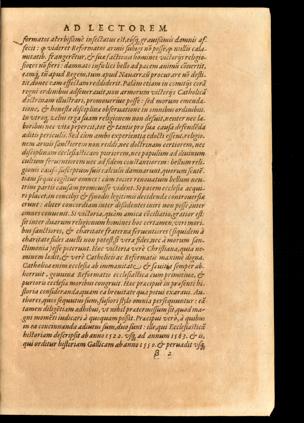 AD LECTOREM
formatos acerbissimè insectatus est, eísq́; grauissimis damnis af-
fecit: & videret Reformatos armis subigi nõ posse, & nullis cala-
mitatib. frangerẽtur, & sua factiosos homines victorijs religio-
fineret nõ fere: damnato infœlici bello ad pacem animũ cõuertit,
eamq́; tũ apud Regem, tum apud Nauarræũ procurare nõ desti-
tit, donec eam effectam reddiderit. Palàm etiam in comitijs corã
regni ordinibus asseuerauit, non armorum victorijs Catholicã
doctrinam illustrari, promouerive posse: sed morum emenda-
tione, & honesta disciplinæ obseruatione in omnibus ordinibus.
In utroq; zelus erga suam religionem non defuit,
boribus nec vitæ pepercit, et tantis pro sua causa defendẽda
aditis periculis. Sed cùm ambo experientia edocti essent, religio-
nem armis sanctiorem non reddi, nec doctrinam certiorem, nec
disciplinam ecclesiasticam potiorem, nec populum ad diuinum
cultum feruentiorem nec ad fidem constantiorem: bellum reli-
gionis causa susceptum suis calculis damnarunt, quorum senten-
tiam sequi cogitur omnes: cùm tories renouatum bellum neu-
trius partis causam promouisse vident. Si pacem ecclesiæ acqui-
ri placet, an concilijs & synodis legitimis decidendæ controuersiæ
erunt: aliter concordiam inter dissidentes iniri non posse inter
omnes conuenit. Si victoria, quàm amica cõciliatio, gratior es-
se inter duarum religionum homines hoc certamen, vtri mori-
bus sanctiores, & charitate fraterna feruentiores (siquidem à
charitate fides auelli non potest) sua vera fideliq́; arce à morum san-
ctimonia iesse poterunt. Hæc victoria verè Christiana, quia ne-
minem lædit, & verè Catholicis ac Reformatis maximè digna.
Catholica autem ecclesia ab immanitate, & sæuitia semper ab-
horruit, genuina Reformatio ecclesiastica cum primitiuæ, &
purioris ecclesiæ moribus congruit. Hæc præcipuè in præsenti hi-
storia consideranda, quam ea breuitate qua potui exaraui. Au-
thores, quos sequutus sum, fusiori stylo omnia persequuntur: eã
tamen diligentiam adhibui, vt nihil prætermissum sit, quod mag-
ni momẽti iudicari à quoquam possit. Præcipui verò, à quibus
in ea concinnanda adiutus sum, duo sunt: ille, qui Ecclesiasticã
historiam descripsit ab anno 1522. vsq; ad annum 1563. & is,
qui orditur historiam Gallicam ab anno 1550. & peruadit vsq;
β 2